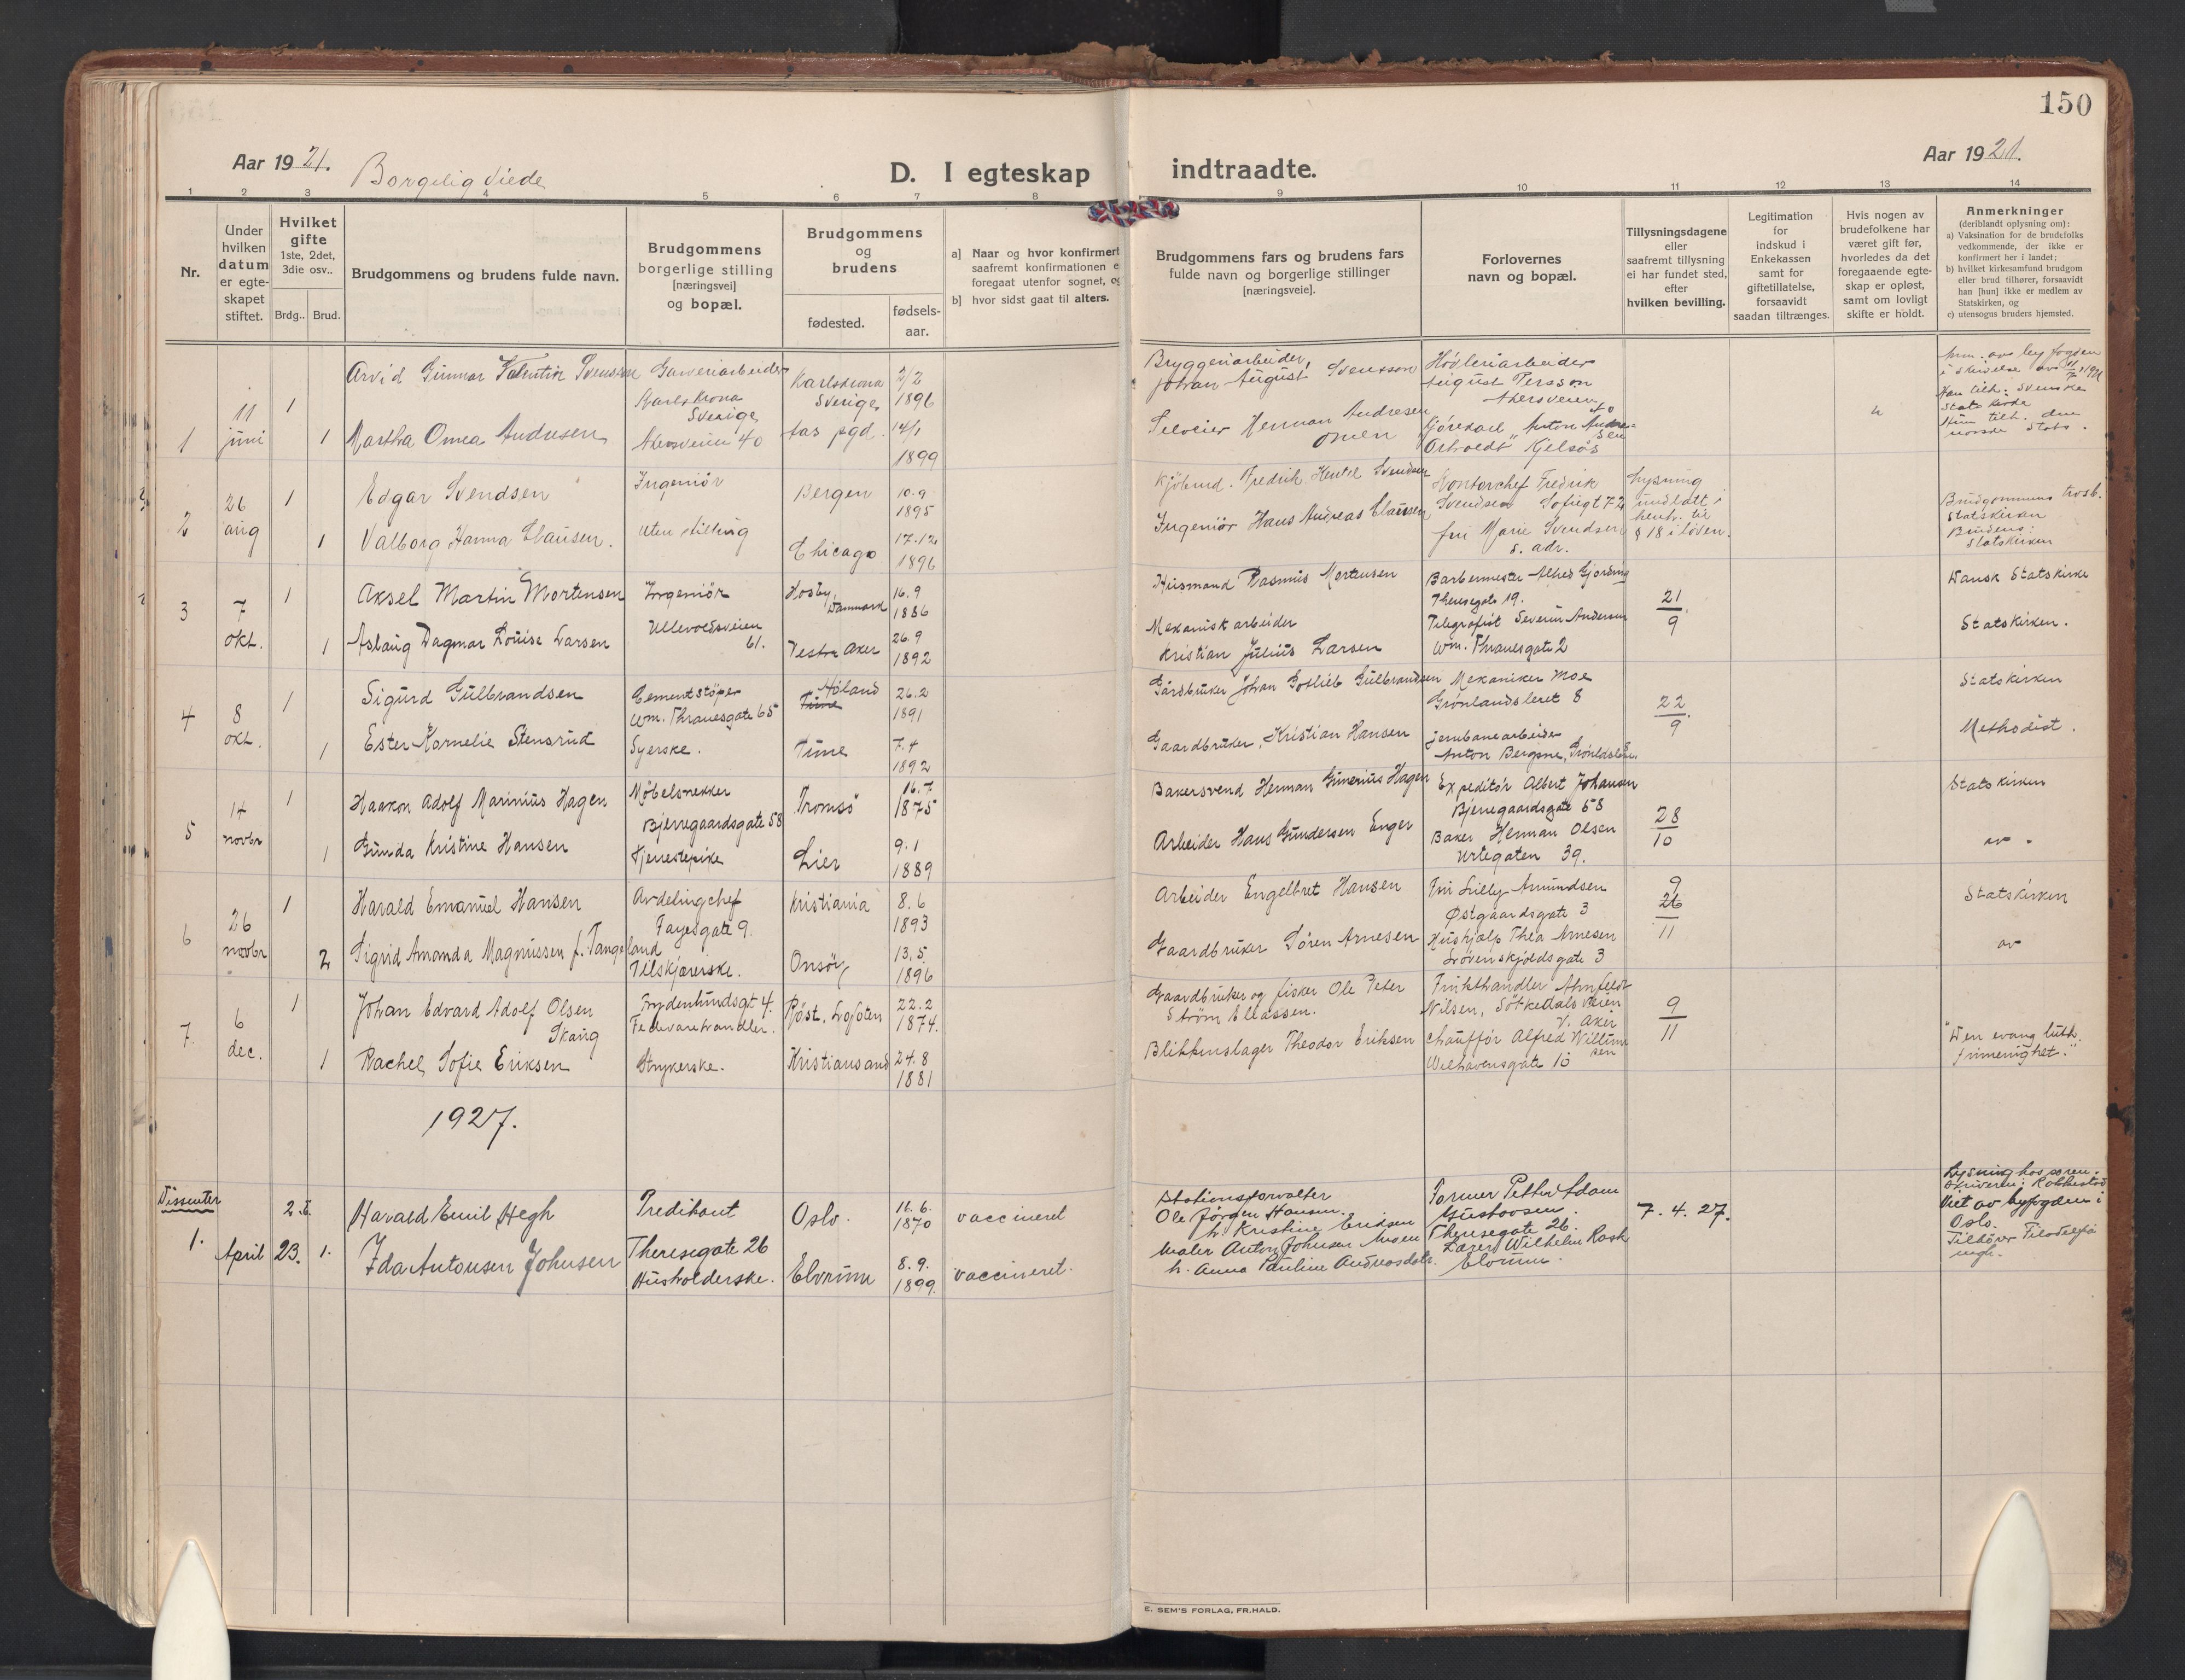 150
Aar 1921.
Borgelig viede
D. I egteskap indtraadte.
Aar 1921.
1 2 3 4 5 6 7 8 9 10 11 12 13 14
Nr.
Under
hvilken
datum
er egte-
skapet
stiftet.
Hvilket
gifte
1ste, 2det,
3die osv..
Brdg.. Brud.
Brudgommens og brudens fulde navn.
Brudgommens
borgerlige stilling
[næringsvei]
og bopæl.
Brudgommens
og
brudens
fødested.
fødsels-
aar.
a] Naar og hvor konfirmert
saafremt konfirmationen e
foregaat utenfor sognet, og
b] hvor sidst gaat til alters.
Brudgommens fars og brudens fars
fulde navn og borgerlige stillinger
[næringsveie].
Forlovernes
navn og bopæl.
Tillysningsdagene
eller
saafremt tillysning
ei har fundet sted,
efter
hvilken bevilling.
Legitimation
for
indskud i
Enkekassen
samt for
giftetillatelse,
forsaavidt
saadan tiltrænges.
Hvis nogen av
brudefolkene har
været gift før,
hvorledes da det
foregaaende egte-
skap er opløst,
samt om lovligt
skifte er holdt.
Anmerkninger
(deriblandt oplysning om):
a) Vaksination for de brudefolks
vedkommende, der ikke er
konfirmert her i landet;
b) hvilket kirkesamfund brudgom
eller brud tilhører, forsaavidt
han [hun] ikke er medlem av
Statskirken, og
c) utensogns bruders hjemsted.
1
11
juni
1
Arvid Gunnar Valentin Svensson
Garveriarbeider
Karlskrona
Sverige
Karlskrona
Sverige
2/2
1896
Bryggeriarbeider
Johan August Svensson
Høvleriarbeider
August Persson
Akersveien 40
1
Martha Omea Andresen
Akersveien 40
Aas pgd.
14/1
1899
Herman Andresen
Anton Andre-
sen
Kjelsås
Svenske
Stats kirke
2
26
aug
1
Edgar Svendsen
Ingeniør
Bergen
10.9
1895
Fredrik Svendsen
Kontorchef Fredrik
Svendsen Sofiegt 72
Lysning
undlatt i
henh. til
§ 18 i loven.
Brudgommens trosb.
Statskirken
Brudens:
Statskirken
1
Valborg Hanna Clausen.
Uten stilling
Chicago
17.12
1896
Ingeniør Hans Andreas Clausen
fru Marie Svendsen
s. adr.
3
7
okt.
1
Aksel Martin Mortensen
Ingeniør
Ullevoldsveien
61.
Hosby,
Danmark
16.9
1886
Husmand Rasmus Mortensen
Barbermester Alfred Gjording
Theresegate 19.
21
9
Dansk Statskirke
1
Aslaug Dagmar Louise Larsen
Vestre Aker
26.9
1892
Mekanisk arbeider
Kristian Julius Larsen
Telegrafist Severin Andersen
Wm. Thranesgate 2
Statskirken.
4
8
okt.
1
Sigurd Gulbrandsen
Cementstøper
Wm. Thranesgate 65
Høland
26.2
1891
Gårdbruker Johan Gotlieb Gulbrandsen
Mekaniker Moe
Grønlandsleret 8
22
9
Statskirken
1
Ester Kornelie Stensrud
Syerske.
Tune
7.4
1892
Gaardbruker, Kristian Hansen
jernbanearbeider
Anton Bergsne,
Methodist.
5
14
novbr
1
Haakon Adolf Marinius Hagen
Møbelsnekker
Bjerregaardsgate 58
Tromsö
16.7
1875
Bakersvend Herman Gunerius Hagen
Expeditør Albert Johansen
Bjerregaardsgate 58
28
10
Statskirken
1
Gunda Kristine Hansen
tjenestepike
Lier
9.1
1889
Arbeider Hans Gundersen Enger
Baker Herman Olsen
Urtegaten 39.
6
26
novbr
1
Harald Emanuel Hansen
Avdelingchef
Fayesgate 9.
Kristiania
8.6
1893
Arbeider Engelbret Hansen
Fru Lilly Amundsen
Østgaardsgate 3
9
26
11
Statskirken
2
Sigrid Amanda Magnussen f. Tangeland
Tilskjærerske.
Onsöy
13.5
1896
Gaardbruker Sören Arnesen
Hushjælp Thea Arnesen
Løvenskjoldsgate 3
7
6
dec.
1
Johan Edvard Adolf Olsen
Skaug
Frydenlundsgt 4.
Fedevarehandler.
Røst, Lofoten
22.2
1874.
Gaardbruker og fisker Ole Peter
Strøm Eliassen.
Frukthandler Ahnfeldt
Nilsen, Sørkedalsveien
V. Aker
9
11
1
Rachel Sofie Eriksen
Strykerske.
Kristiansand
24.8
1881
Blikkenslager Theodor Eriksen
chauffør Alfred Willum
sen
Welhavensgate 10
"Den evang luth.
frimenighet."
1927.
Dissenter
1.
April 23.
2.
Harald Emil Hegh
Predikant
Theresegate 26
Oslo.
16.6.
1870
vaccineret
Stationsforvalter
Ole Jørgen Hansen
h. Kristine Eriksen
Former Petter Adam
Gustavsen.
Theresegate 26.
7.4.27.
Lysning hos soren-
skriveren:
Viet av byfogden i
Oslo.
Tilhører Filadelfia
mgh.
1.
Ida Antonsen Johnsen
Husholderske.
Elverum
8.9.
1899.
vaccineret.
Maler Anton Johnsen
h. Anna Pauline Andreasdtr.
Lærer Wilhelm Rask
Elverum.
E. SEM'S FORLAG, FR.HALD.